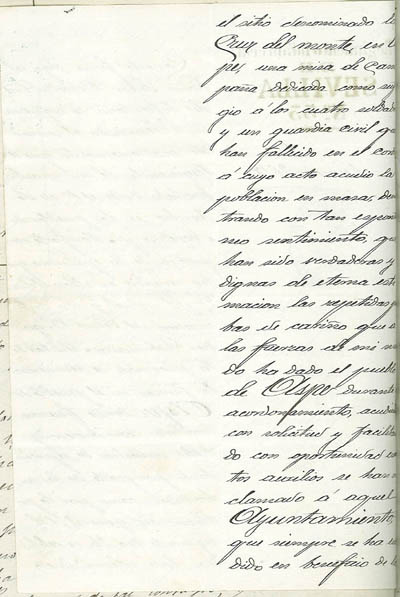 el sitio denominado la
Cruz del monte, en U
pe, una misa de Cam
paña dedicada como suf
gio á los cuatro soldad
y un guardia civil qu
han fallecido en el con
á cuyo acto acudio la
poblacion en masa, de
trando con tan espon
neo sentimiento, qu
han sido verdaderas y
dignas de eterna esti
macion las repetidas
bas de cariño que a
las fuerzas de mi m
do ha dado el pueblo
de Aspe durante
acordonamiento, acu
con solicitud y facilita
do con oportunidad cu
tos auxilios se han
clamado á aquel
Ayuntamiento,
que siempre se ha
dido en beneficio de l
SEVILLA